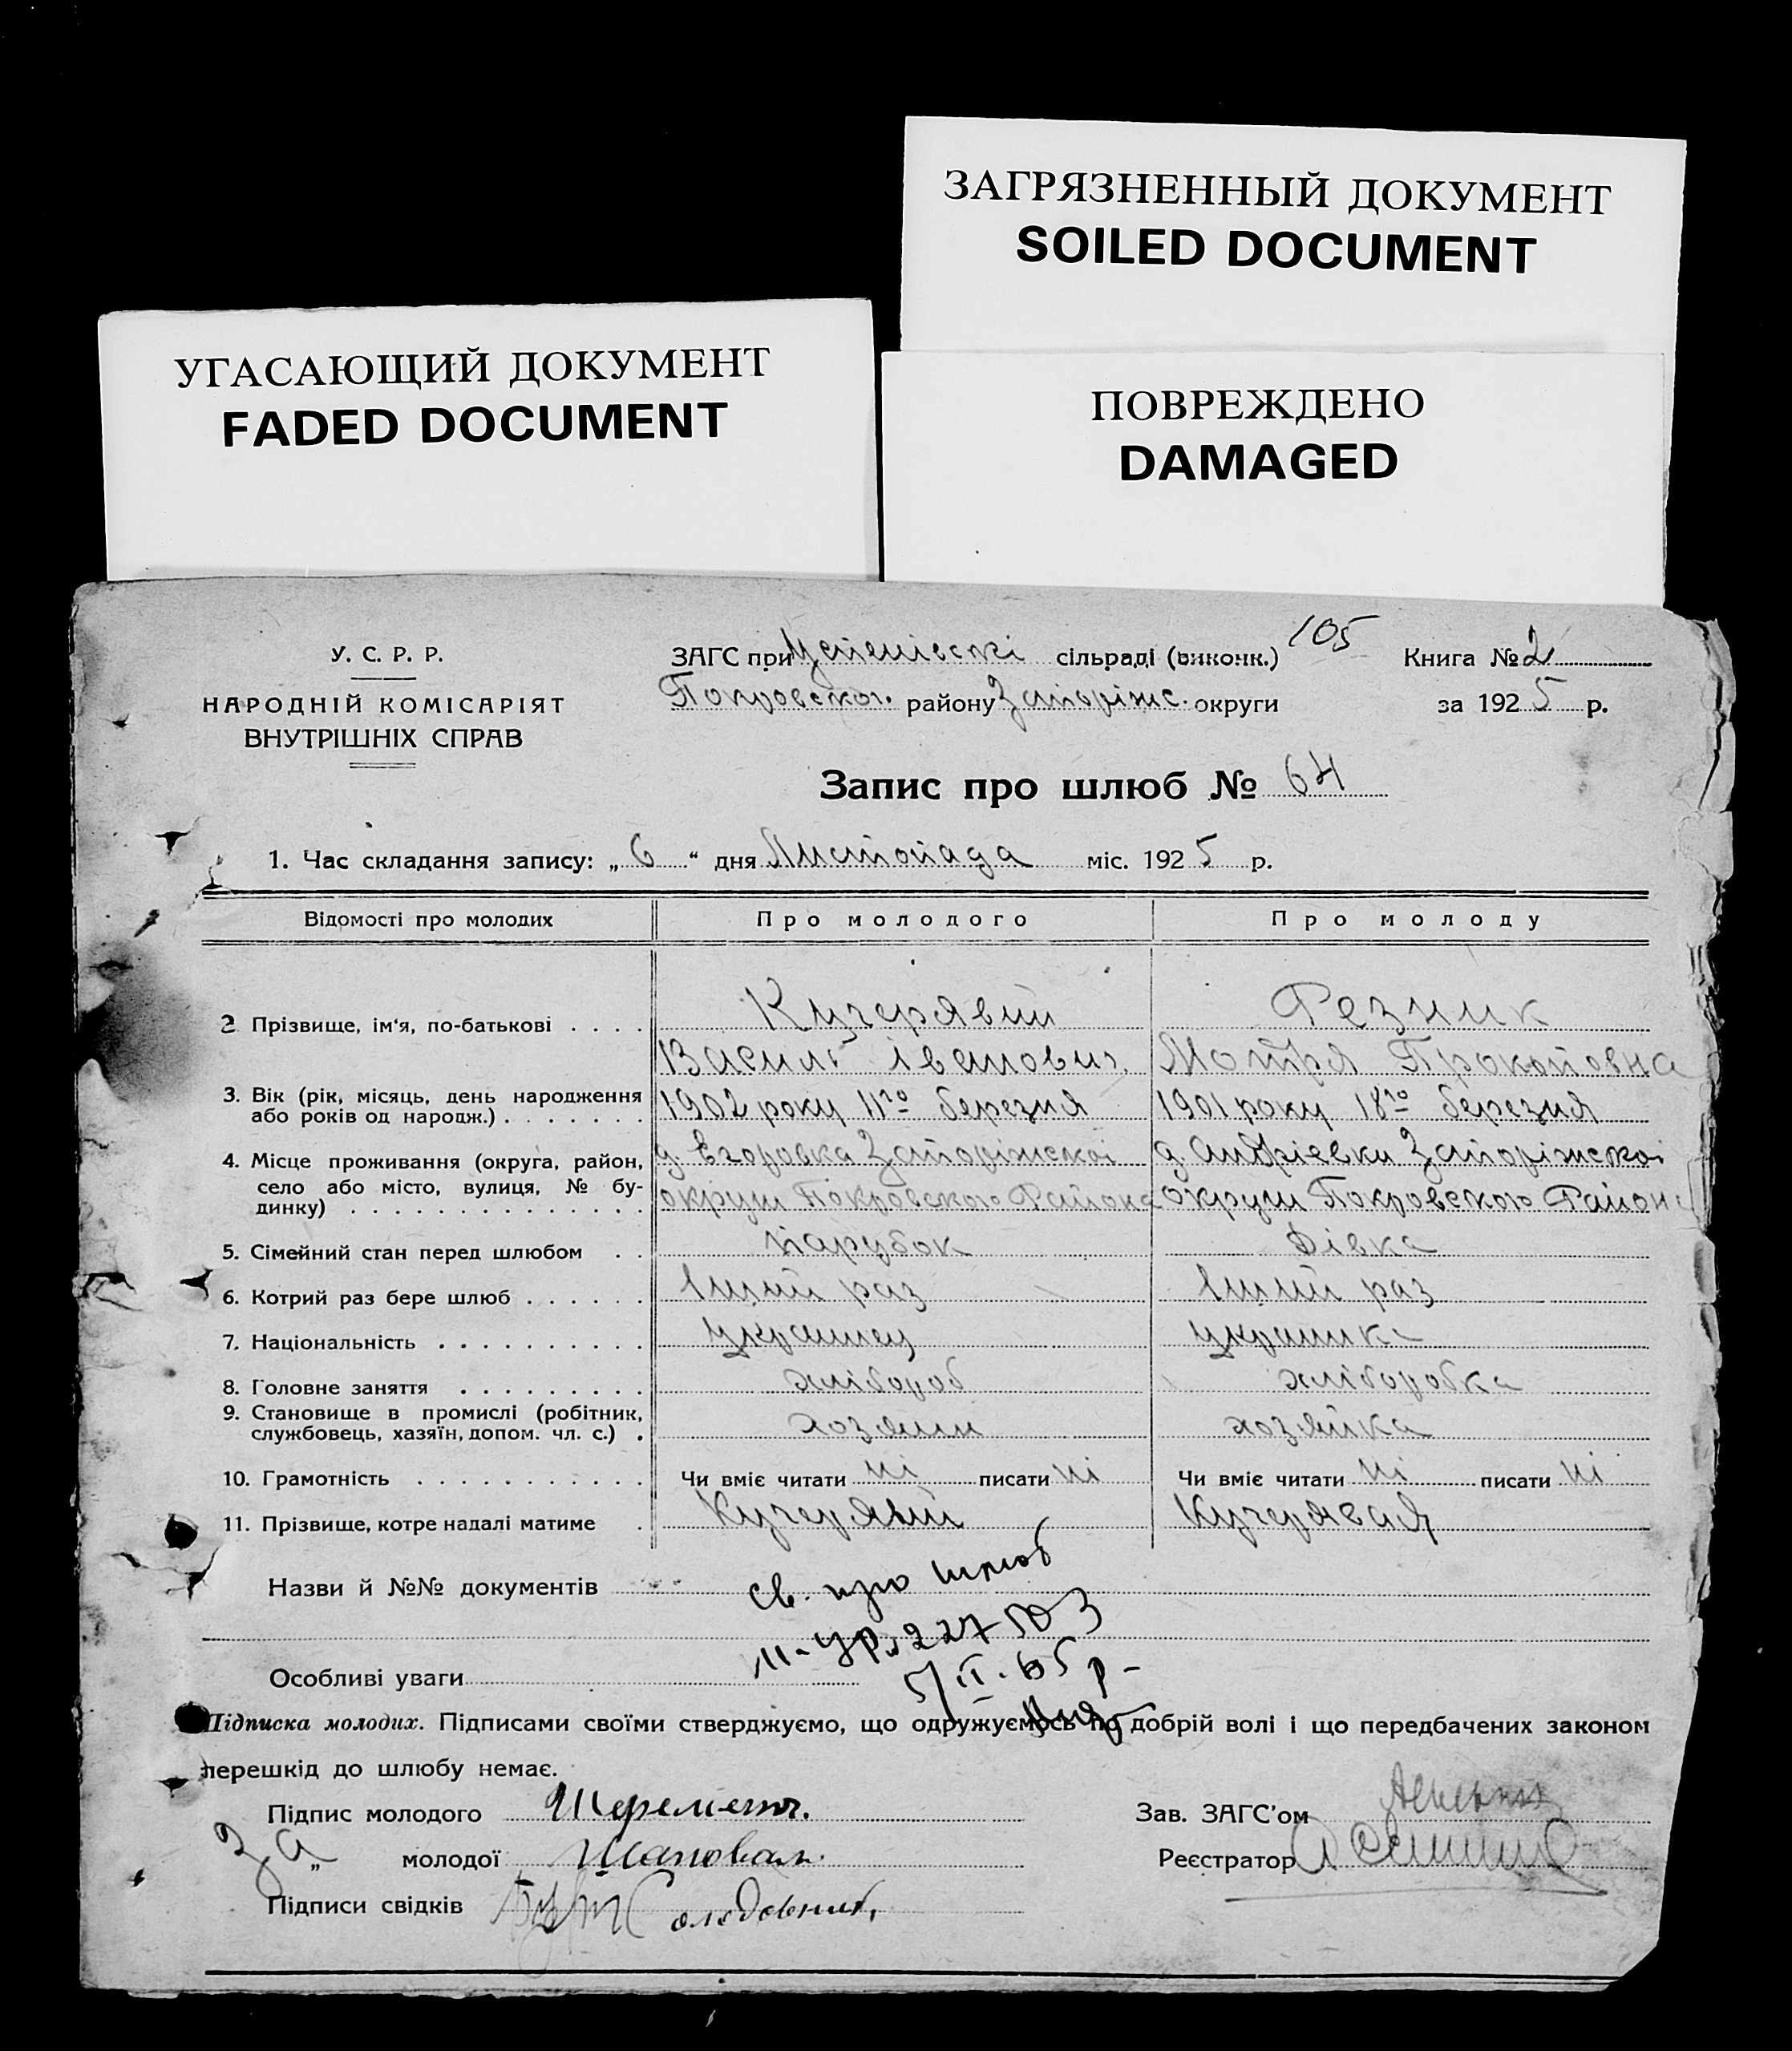 ЗАГРЯЗНЕННЫЙ ДОКУМЕНТ
SOILED DOCUMENT
УГАСАЮЩИЙ ДОКУМЕНТ
FADED DOCUMENT
ПОВРЕЖДЕНО
DAMAGED
У. С. Р. Р.
НАРОДНІЙ КОМІСАРІЯТ
ВНУТРІШНІХ СПРАВ
ЗАГС при Успенівскі сільраді (виконк.) 105
Покровского. району Запоріжс. округи
Книга № 2
за 1925 р.
Запис про шлюб № 64
1. Час складання запису: „6" дня Листопада міс. 1925 р.
Відомості про молодих Про молодого Про молоду
2 Прізвище, ім'я, по-батькові . . . . Кучерявий Резник
Василь Іванович. Мотря Прокоповна
3. Вік (рік, місяць, день народження або років од народж.) . . . . . . . 1902 року 11го березня 1901 року 18го березня
4. Місце проживання (округа, район, село або місто, вулиця, № будинку) . . . . . . . . . . . . . . д. Егоровка Запоріжскоі д. Андріевки Запоріжскоі
округи Покровского Района округи Покровского Район
5. Сімейний стан перед шлюбом . . Парубок Дівка
6. Котрий раз бере шлюб . . . . . . 1ший раз 1ший раз
7. Національність . . . . . . . . . . украинец украинка
8. Головне заняття . . . . . . . . . хлібороб хліборобка
9. Становище в промислі (робітник, службовець, хазяїн, допом. чл. с.) . хозяин хозяйка
10. Грамотність . . . . . . . . . . . Чи вміє читати ні писати ні Чи вміє читати ні писати ні
11. Прізвище, котре надалі матиме . Кучерявий Кучерявая
Назви й №№ документів св. про шлюб
11-УР № 227503
Особливі уваги 5/II.65 р-
Підписка молодих. Підписами своїми стверджуємо, що одружуємось по добрій волі і що передбачених законом
перешкід до шлюбу немає.
Підпис молодого Шеремет. Зав. ЗАГС'ом
За „ молодої Шаповал. Реєстратор
Підписи свідків